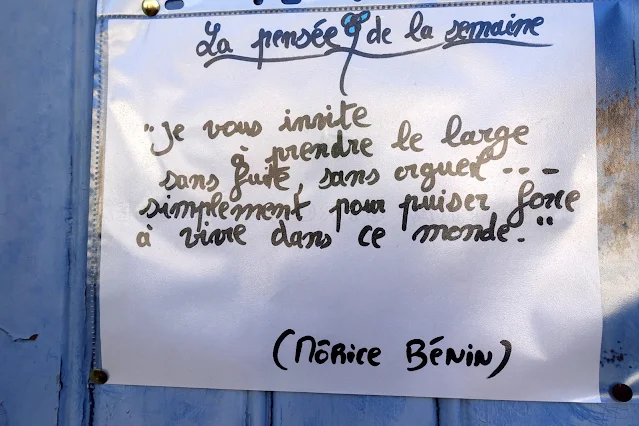 La pensée de la semaine
"Je vous invite
à prendre le large
sans fuite, sans orgueil...
simplement pour puiser force
à vivre dans ce monde."
(Môrice Bénin)